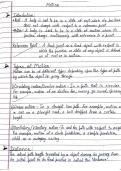 Motion
Introduction
Rest - A body is said to be in a state of rest when its position
does not change with respect to a reference point.
Motion - A body is said to be in a state of motion when its
position change continuously with reference to a point.
Reference Point - A fixed point or a fixed object with respect to
which the position or state of any object is defined
at rest or motion.
Types of Motion
Motion can be of different types depending upon the type of path
by which the object is going through.
Circulatory motion/Circular motion - In a path that is circular.
For example, motion of an electron around nucleus,
Linear motion - In a straight line path. For example, motion
car on a straight road, a ball dropped from a certain
height.
Oscillatory/Vibratory motion - To and fro path with respect to
For example, motion of a clock pendulum, a simple pendulum,
child on a swing
Distance
The actual path length travelled by a object during its journey from
its initial point to its final position is called the 'distance'.